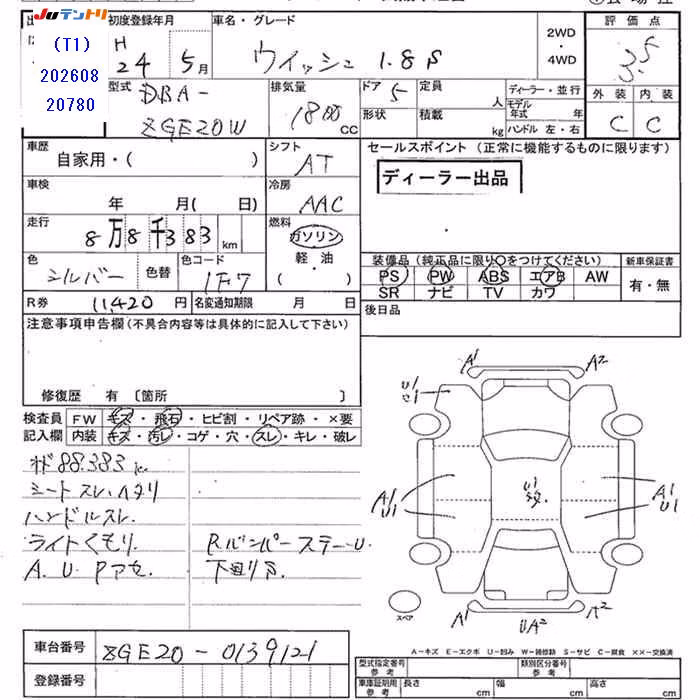 JUテントリ
(T1)
202608
20780
初度登録年月
H
24 5月
車名・グレード
ウイッシュ 1.8S
2WD
・
4WD
評価点
3.5
型式
DBA-
ZGE20W
排気量
1800 CC
ドア 5
形状
定員 人
積載 kg
ディーラー・並行
モデル年式 年
ハンドル 左・右
外装 内装
C C
車歴
自家用・( )
シフト
AT
セールスポイント (正常に機能するものに限ります)
ディーラー出品
車検
年 月( 日)
冷房
AAC
走行
8万8千383 km
燃料
ガソリン
軽・油
・
( )
色
シルバー
色替
色コード
1F7
装備品(純正品に限り○をつけてください)
新車保証書
PS PW ABS エアB AW
SR ナビ TV カワ
有・無
R券 11,420 円
名変通知期限 月 日
後日品
注意事項申告欄(不具合内容等は具体的に記入して下さい)
修復歴 有 〔箇所 〕
検査員
記入欄
FW キズ・飛石・ヒビ割・リペア跡・×要
内装 キズ・汚レ・コゲ・穴・スレ・キレ・破レ
オド88.383 km
シートスレ.ヘタリ
ハンドルスレ.
ライトくもり.
Rバンパーステー.U.
A.U.Pアセ.
下廻りS.
A1
A2
U1
A1
U1
U1
A1
U1
スペア
A1
UA2
A2
A-キズ E-エクボ U-凹み W-補修跡 S-サビ C-腐食 ××-交換済
車台番号 ZGE20-0139121
登録番号
型式指定番号
参考
類別区分番号
参考
車庫証明用
参考
長さ cm
幅 cm
高さ cm